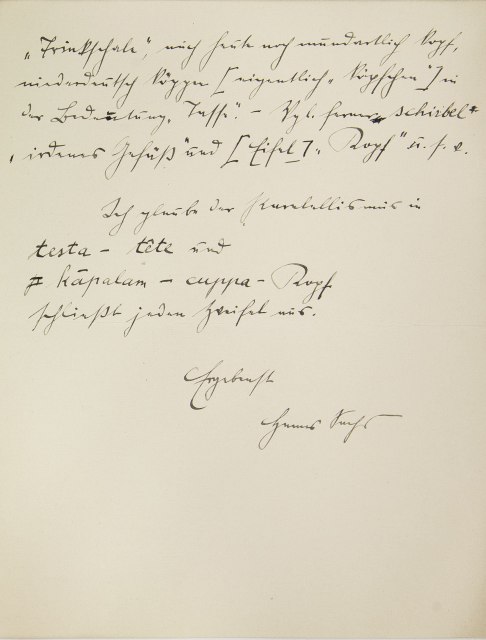 „Trinkschale“, auch heute noch mundartlich Kopf,
niederdeutsch Köppen [eigentlich „Köpfchen“] in
der Bedeutung „Tasse“. – Vgl. ferner „schirbel“
„irdenes Gefäß“ und [Eifel] „Kopf“ u. s. w.
Ich glaube der Parallelismus in
testa – tête und
kāpalam – cuppa – Kopf
schließt jeden Zweifel aus.
Ergebenst
Hanns Sachs